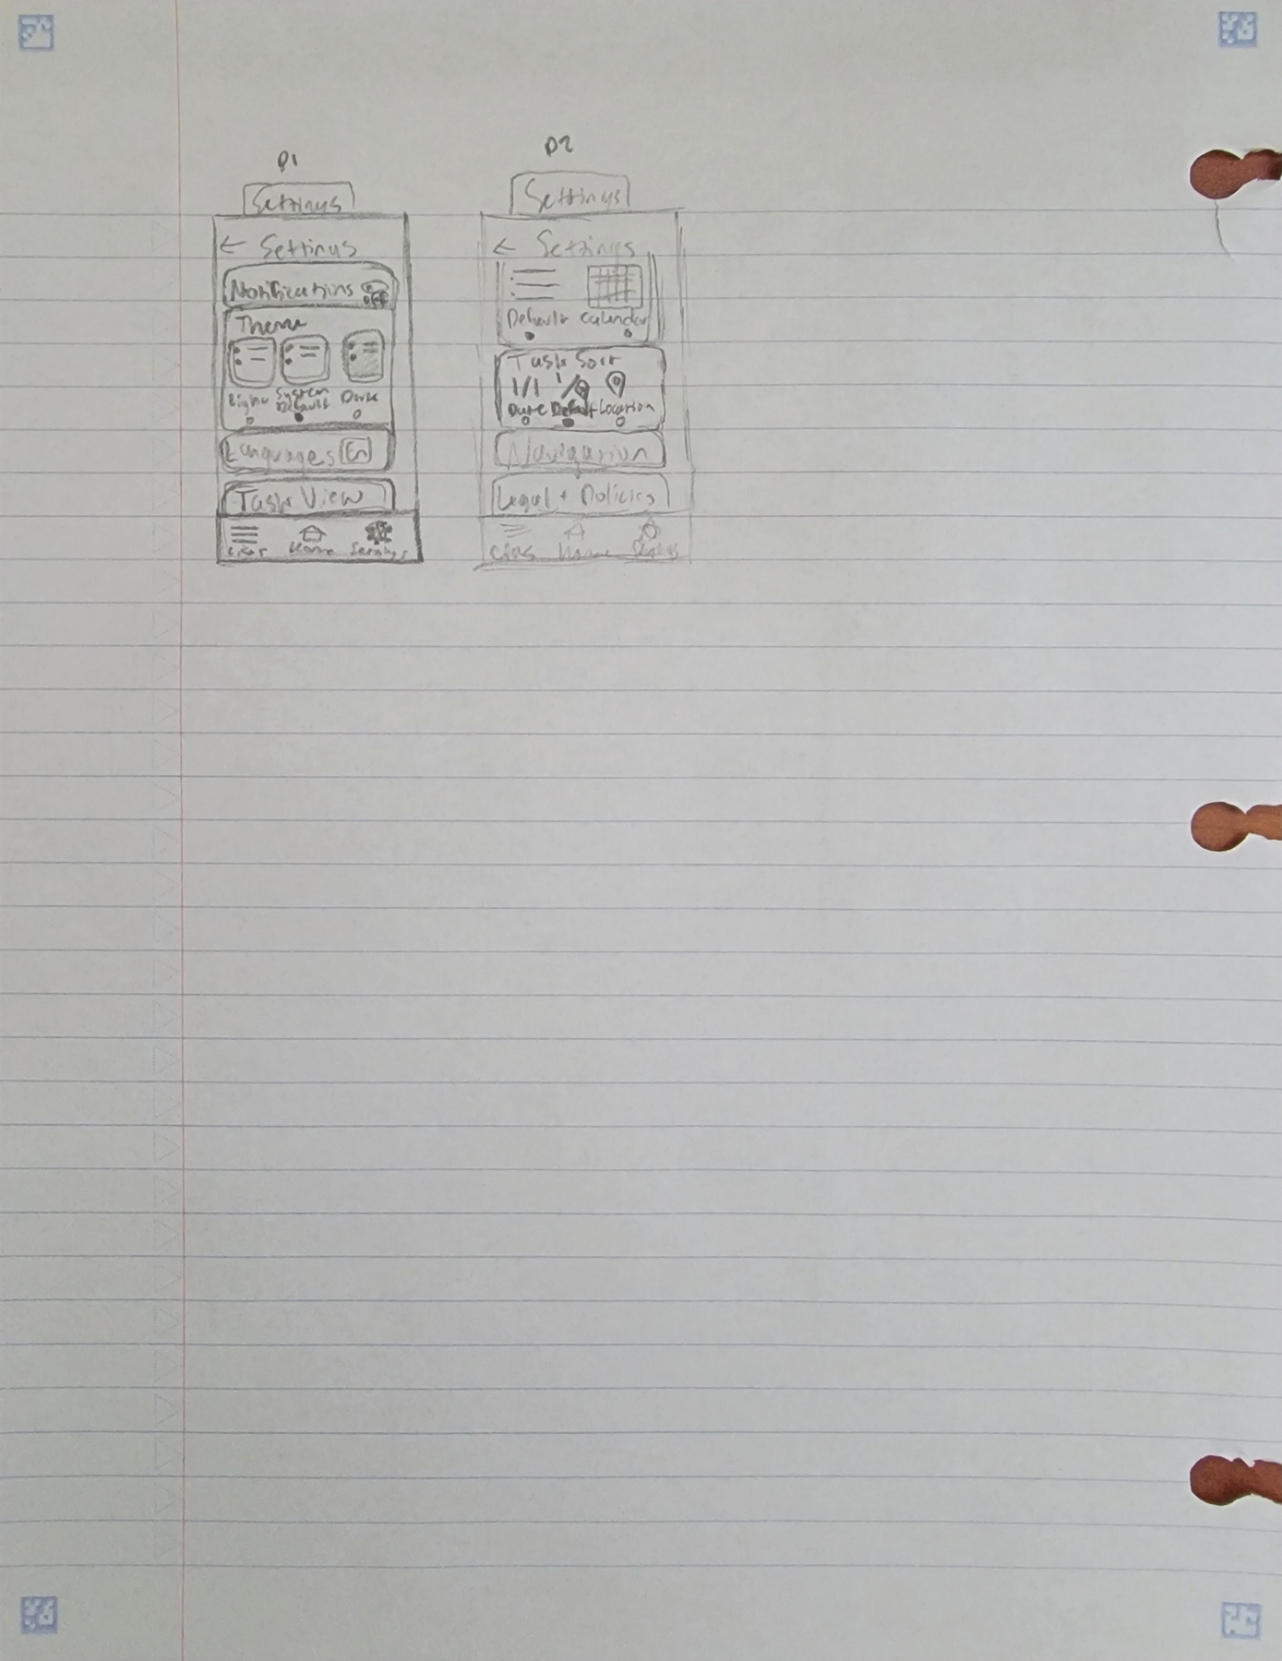 P1
Settings
← Settings
Notifications
Theme
Light System Default Dark
Languages En
Task View
Home Settings
P2
Settings
← Settings
Default Calendar
Task Sort
1/1
Date Default Location
Navigation
Legal + Policies
Home Settings